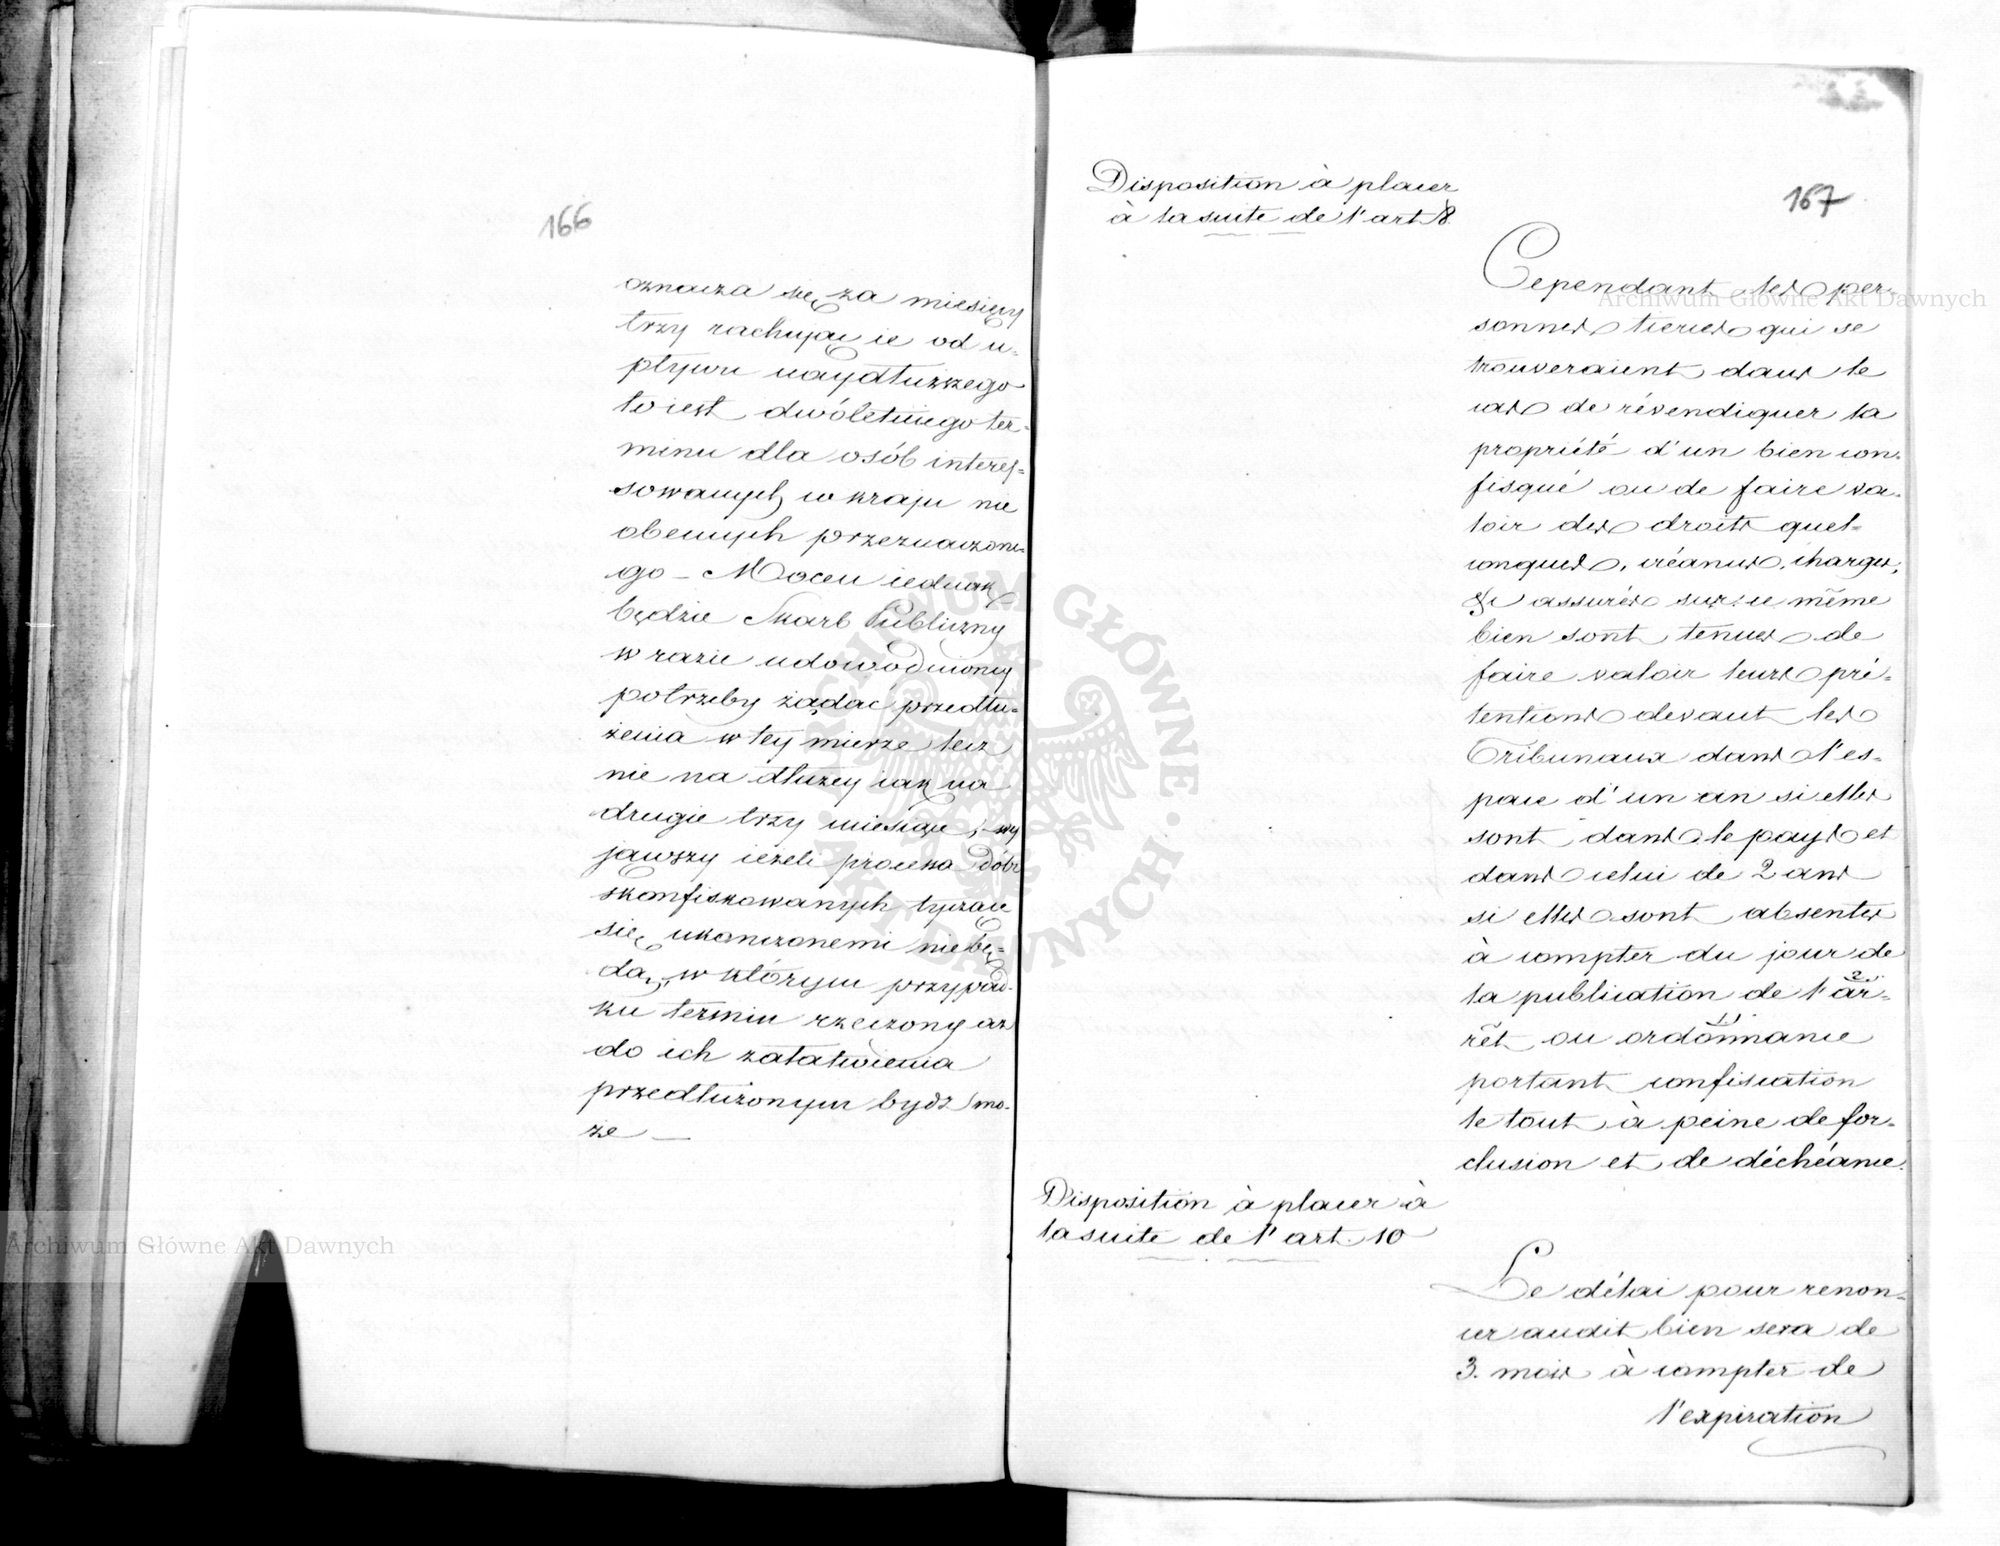 166
oznacza się za miesięcy
trzy rachując ie od u-
pływu naydłuższego
to iest dwóletniego ter-
minu dla osób interes-
sowanych w kraju nie
obecnych przeznaczone-
go – Mocen iednak
będzie Skarb Publiczny
w razie udowodnioney
potrzeby żądać przedłu-
żenia w tey mierze lecz
nie na dłużey iak na
drugie trzy miesiące, wy
jąwszy ieżeli processa dóbr
skonfiskowanych tyczące
się ukonczonemi nie bę-
dą, w którym przypad-
ku termin rzeczony aż
do ich załatwienia
przedłużonym bydź mo-
że —
Disposition à placer
à la suite de l'art 8.
167
Cependant les per-
sonnes tierces qui se
trouveraient dans le
cas de révendiquer la
propriété d'un bien con-
fisqué ou de faire va-
loir des droits quel-
conques, créances, charges,
&c assurés sur ce même
bien sont tenues de
faire valoir leurs pré-
tentions devant les
Tribunaux dans l'es-
pace d'un an si elles
sont dans le pays et
dans celui de 2 ans
si elles sont absentes
à compter du jour de
la publication de l'ar-
2.
rêt ou ordonnance
1).
portant confiscation
le tout à peine de for-
clusion et de déchéance.
Disposition à placer à
la suite de l'art. 10
Le délai pour renon-
cer audit bien sera de
3. mois à compter de
l'expiration
Archiwum Główne Akt Dawnych
Archiwum Główne Akt Dawnych
ARCHIWUM GŁÓWNE · AKT DAWNYCH ·